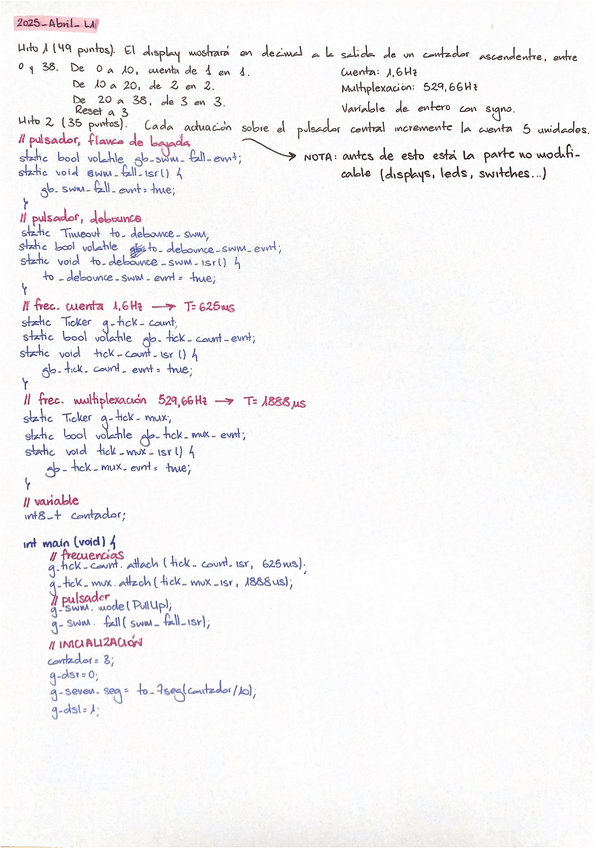 2025_Abril_L1
Hito 1 (49 puntos). El display mostrará en decimal a la salida de un contador ascendentre, entre
0 y 38. De 0 a 10, cuenta de 1 en 1.
De 10 a 20, de 2 en 2.
De 20 a 38, de 3 en 3.
Reset a 3
Cuenta: 1,6Hz
Multiplexación: 529,66Hz
Variable de entero con signo.
Hito 2 (35 puntos). Cada actuación sobre el pulsador central incremente la cuenta 5 unidades.
// pulsador, flanco de bajada
NOTA: antes de esto está la parte no modifi-
cable (displays, leds, switches...)
static bool volatile gb_swm_fall_evnt;
static void swm_fall_isr() {
gb_swm_fall_evnt = true;
}
// pulsador, debounce
static Timeout to_debounce_swm;
static bool volatile to_debounce_swm_evnt;
static void to_debounce_swm_isr() {
to_debounce_swm_evnt = true;
}
// frec. cuenta 1,6Hz → T=625ms
static Ticker g_tick_count;
static bool volatile gb_tick_count_evnt;
static void tick_count_isr () {
gb_tick_count_evnt = true;
}
// frec. multiplexación 529,66Hz → T= 1888 µs
static Ticker g_tick_mux;
static bool volatile gb_tick_mux_evnt;
static void tick_mux_isr() {
gb_tick_mux_evnt = true;
}
// variable
int8_t contador;
int main (void) {
// frecuencias
g_tick_count.attach (tick_count_isr, 625ms);
g_tick_mux.attach (tick_mux_isr, 1888us);
// pulsador
g_swm.mode(PullUp);
g_swm.fall(swm_fall_isr);
// INICIALIZACIÓN
contador = 3;
g_dsr = 0;
g_seven_seg = to_7seg(contador/10);
g_dsl = 1;